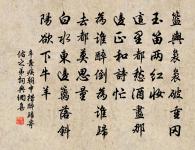 籃輿裊裊破重岡
玉笛兩紅妝這
裏都愁酒盡那
邊正和詩忙
為誰醉倒為誰歸
去都莫思量
白水東邊籬落斜
陽欲下牛羊
辛棄疾朝中措醉歸寄
祐之弟詞典網書